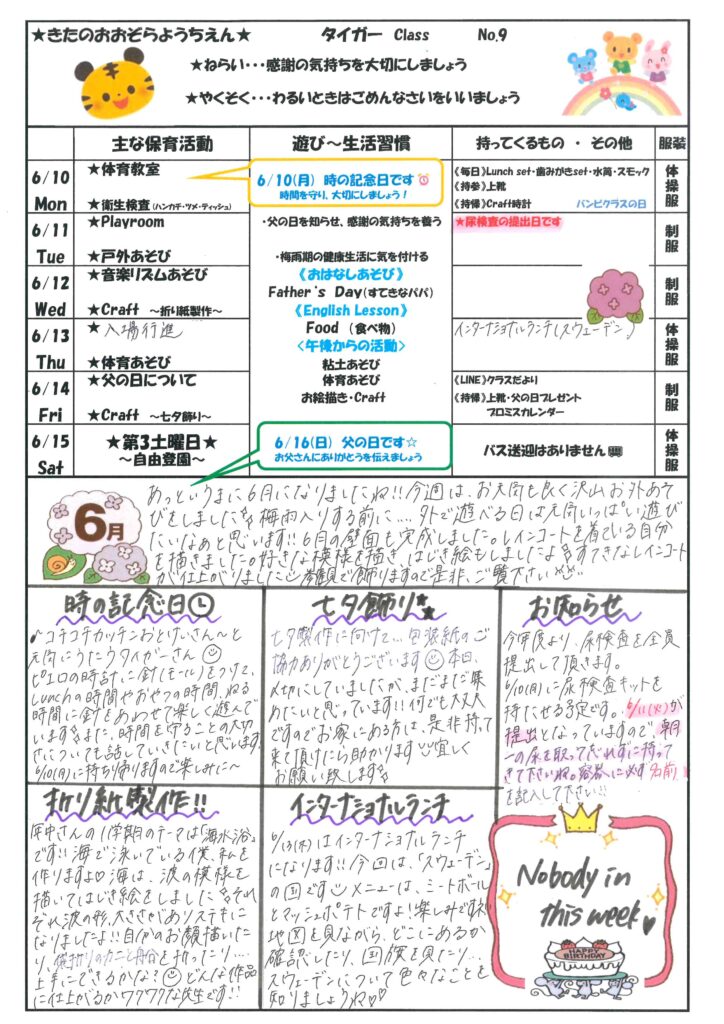 ★きたのおおぞらようちえん★ タイガー Class No.9
★ねらい・・・感謝の気持ちを大切にしましょう
★やくそく・・・わるいときはごめんなさいをいいましょう
主な保育活動 遊び～生活習慣 持ってくるもの ・ その他 服装
6/10 Mon
★体育教室
★衛生検査(ハンカチ・ツメ・ティッシュ)
6/10(月) 時の記念日です
時間を守り、大切にしましょう！
《毎日》Lunch set・歯みがきset・水筒・スモック
《持参》上靴
《持帰》Craft時計 バンビクラスの日
体操服
6/11 Tue
★Playroom
★戸外あそび
・父の日を知らせ、感謝の気持ちを養う
・梅雨期の健康生活に気を付ける
★尿検査の提出日です
制服
6/12 Wed
★音楽リズムあそび
★Craft ～折り紙製作～
《おはなしあそび》
Father's Day(すてきなパパ)
《English Lesson》
制服
6/13 Thu
★入場行進
★体育あそび
Food (食べ物)
<午後からの活動>
粘土あそび
インターナショナルランチ(スウェーデン)
体操服
6/14 Fri
★父の日について
★Craft ～七夕飾り～
体育あそび
お絵描き・Craft
《LINE》クラスだより
《持帰》上靴・父の日プレゼント
プロミスカレンダー
制服
6/15 Sat
★第3土曜日★
～自由登園～
6/16(日) 父の日です☆
お父さんにありがとうを伝えましょう
バス送迎はありません
体操服
6月
あっというまに6月になりましたね!!今週は、お天気も良く沢山お外あそ
びをしました 梅雨入りする前に....外で遊べる日は元気いっぱい遊び
たいなあと思います!!6月の壁面も完成しました。レインコートを着ている自分
を描きました。好きな模様を描き はじき絵もしましたよ すてきなレインコート
が仕上がりました 参観で飾りますので是非、ご覧下さい
時の記念日
♪コチコチカッチンおとけいさん～と
元気にうたうタイガーさん
ピエロの時計に針(モール)をつけて、
Lunchの時間やおやつの時間、ねる
時間に針をあわせて楽しく遊んで
います また、時間を守ることの大切
さについても話していきたいと思います
6/10(月)に持ち帰りますので楽しみに～
七夕飾り
七夕製作に向けて...包装紙のご
協力ありがとうございます 本日、
〆切にしていましたが、まだまだ集
めたいと思っています!!何でも大丈夫
ですのでお家にある方は、是非持って
来て頂けたら助かります 宜しく
お願い致します
お知らせ
今年度より、尿検査を全員
提出して頂きます。
6/10(月)に尿検査キットを
持たせる予定です。6/11(火)が
提出となっていますので朝一
の尿を取って忘れずに持って
きて下さいね。容器に必ず名前
を記入して下さい!!
折り紙製作!!
年中さんの1学期のテーマは「海水浴」
です!!海で泳いでいる僕、私を
作りますよ♡海は、波の模様を
描いてはじき絵をしました それ
ぞれ波の形、大きさがありステキに
なりましたよ!!自分のお顔描いた
り、折り紙のカニと舟を折ったり...
上手にできるかな？どんな作品
に仕上がるかワクワクな先生です!!
インターナショナルランチ
6/13(木)はインターナショナルランチ
になります!!今回は、「スウェーデン」
の国です メニューは、ミートボール
とマッシュポテトですよ!楽しみですね
地図を見ながら、どこにあるか
確認したり、国旗を見たり...
スウェーデンについて色々なことを
知りましょうね♡♡
Nobody in
this week♥
HAPPY
BIRTHDAY